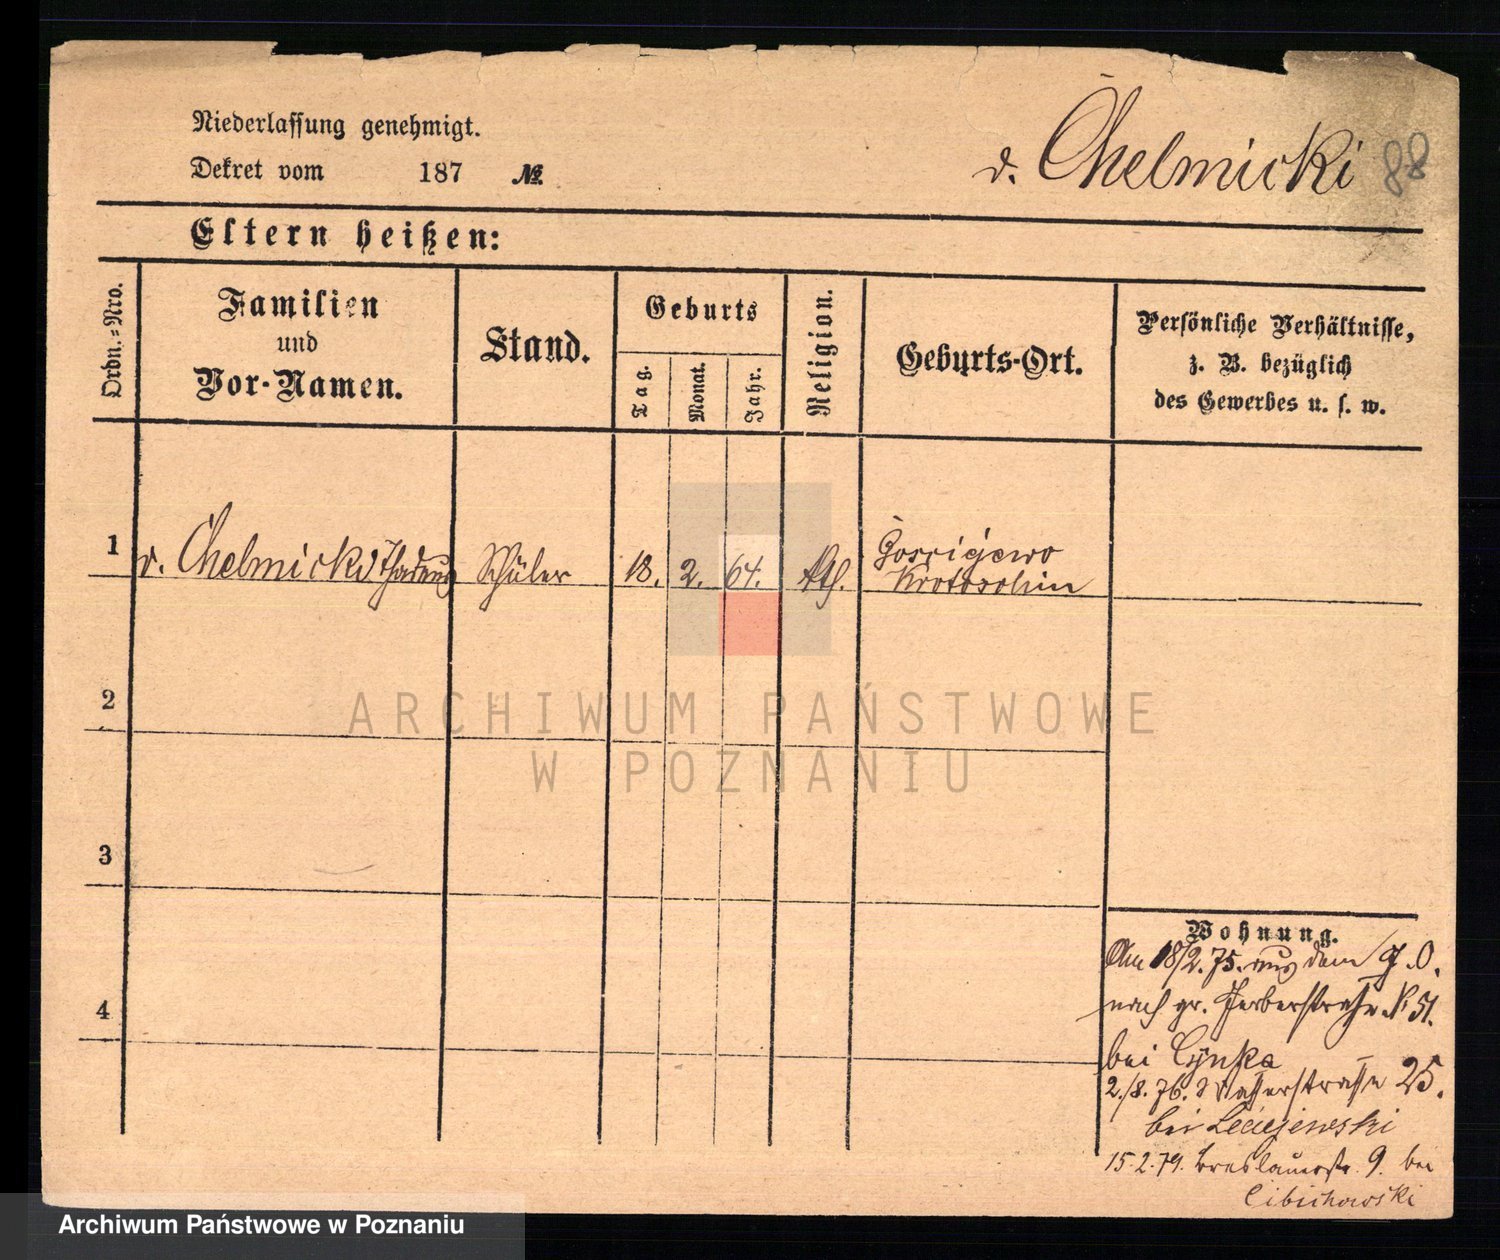 Niederlassung genehmigt.
Dekret vom 187 №
v. Chelmicki 88
Eltern heißen:
Ordn.=Nro.
Familien
und
Vor-Namen.
Stand.
Geburts
Tag.
Monat.
Jahr.
Religion.
Geburts-Ort.
Persönliche Verhältnisse,
z. B. bezüglich
des Gewerbes u. s. w.
1 v. Chelmicki Thadeus Schüler 18. 2. 64. kth.
Krotoschin
2
3
4
Wohnung.
Am 18/2. 75. aus dem
nach gr. Gerberstraße № 51.
bei Cynka
2./8. 76. Wasserstraße 25.
bei Leciejewski
15.2.79. Breslauerstr. 9. bei
Cibichowski
ARCHIWUM PAŃSTWOWE
W POZNANIU
Archiwum Państwowe w Poznaniu